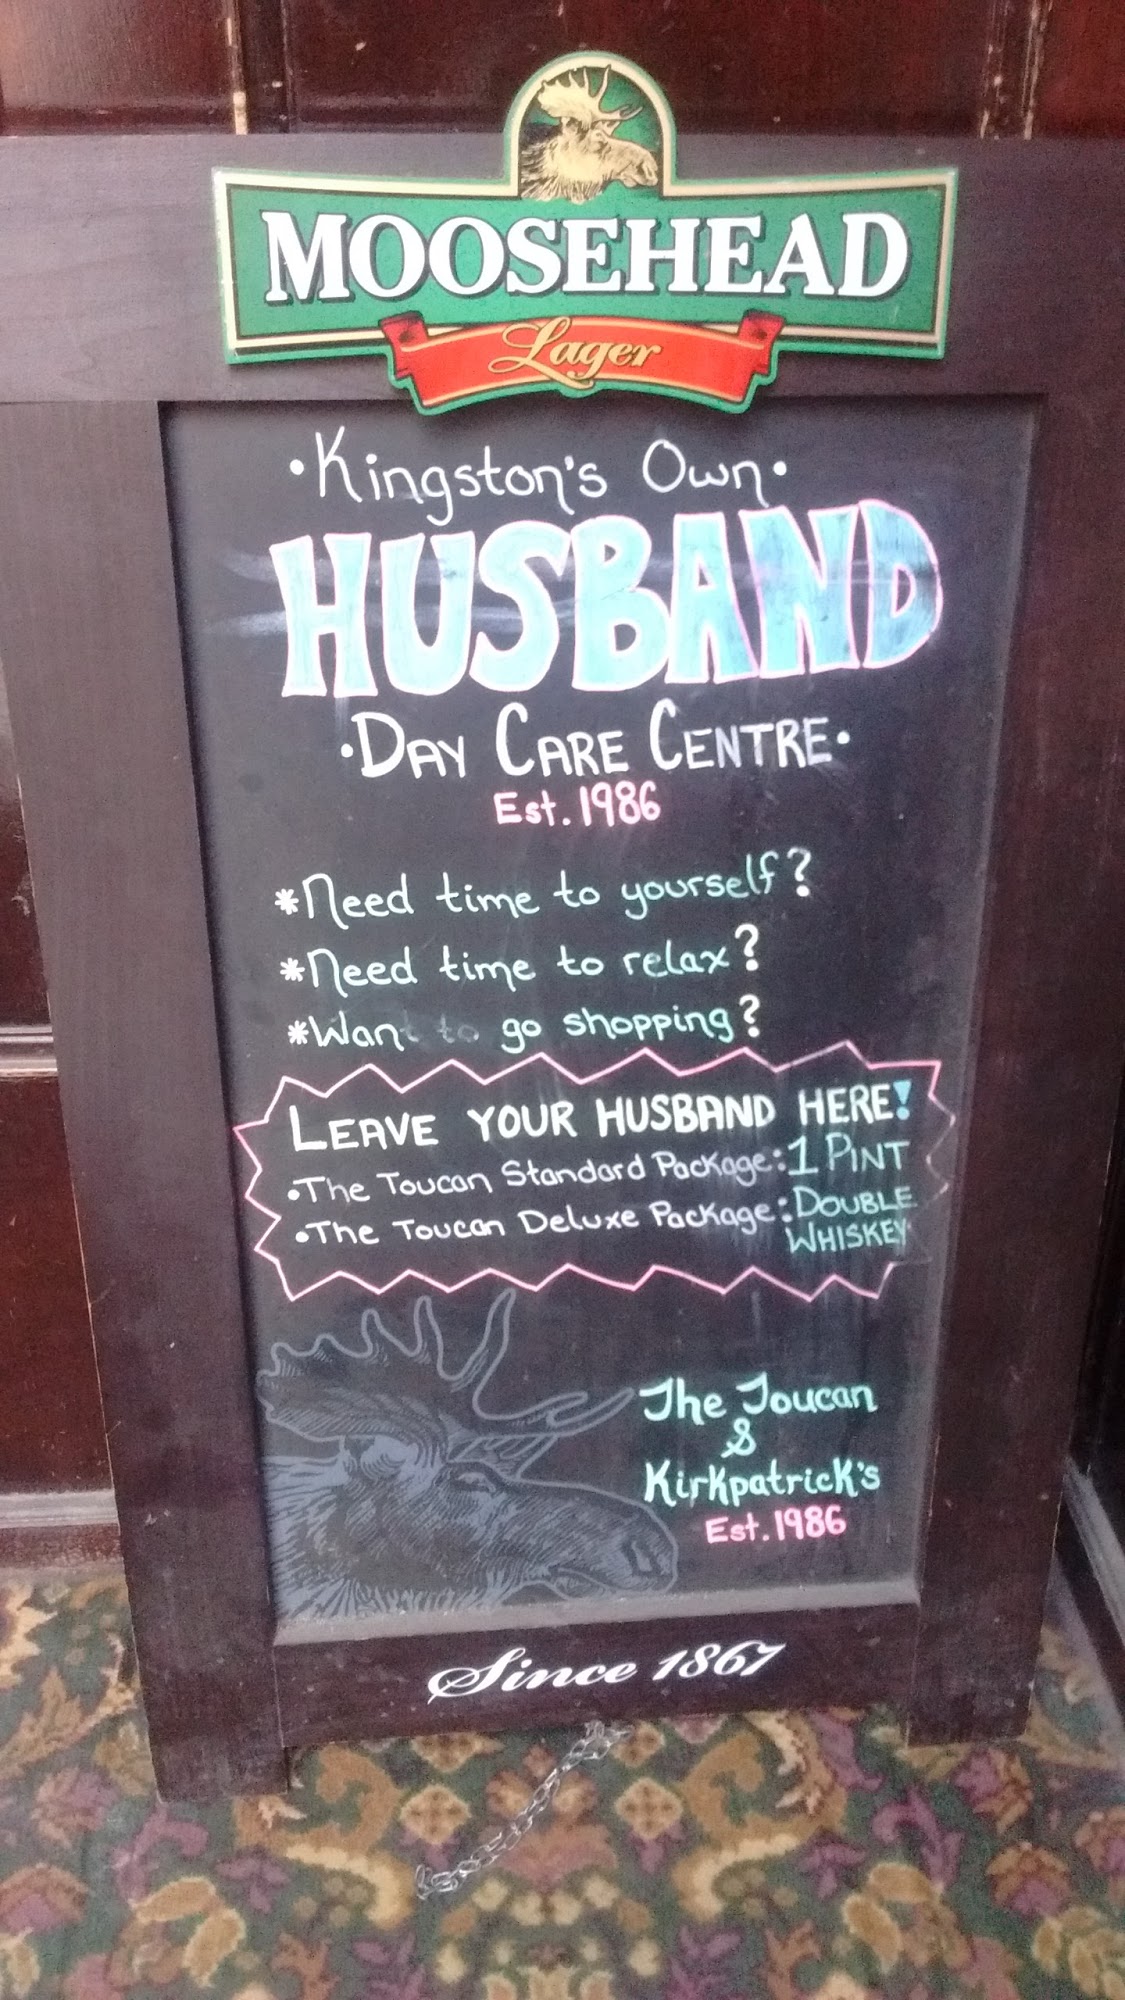 MOOSEHEAD
Lager
•Kingston's Own•
HUSBAND
•DAY CARE CENTRE•
Est. 1986
*Need time to yourself?
*Need time to relax?
*Want to go shopping?
LEAVE YOUR HUSBAND HERE!
•The Toucan Standard Package: 1 PINT
•The Toucan Deluxe Package: DOUBLE
WHISKEY
The Toucan
&
Kirkpatrick's
Est. 1986
Since 1867